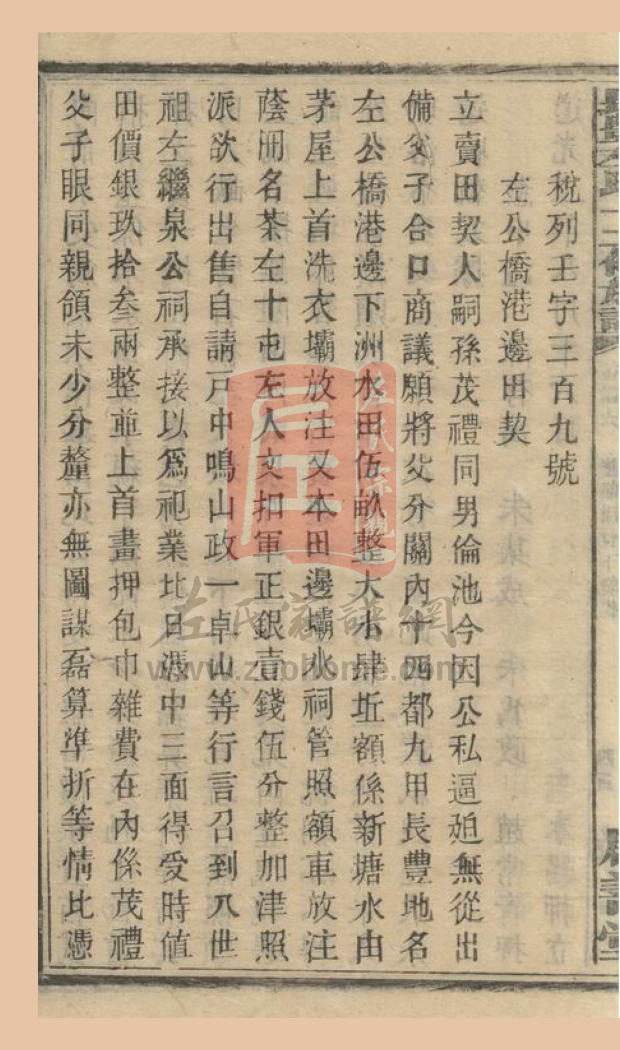 稅列壬字三百九號
左公橋港邊田契
立賣田契人嗣孫茂禮同男倫池今因公私逼廹無從出
備父子合口商議願將父分關內十四都九甲長豐地名
左公橋港邊下洲水田伍畝整大小肆坵額係新塘水由
茅屋上首洗衣壩放注又本田邊壩水祠管照額車放注
蔭冊名茶左十屯左人文扣軍正銀壹錢伍分整加津照
派欲行出售自請戸中鳴山政一卓山等行言召到八世
祖左繼泉公祠承接以爲祀業比日憑中三面得受時值
田價銀玖拾叄兩整並上首畫押包巾雜費在內係茂禮
父子眼同親領未少分釐亦無圖謀磊算準折等情比憑
左氏藏譜網
www.zuohome.com